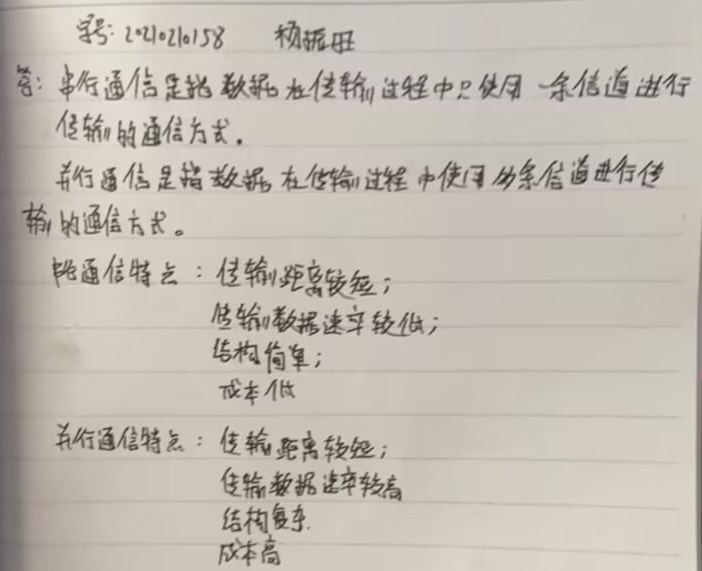 学号: 2021020158 杨振旺
答: 串行通信是指数据在传输过程中只使用一条信道进行
传输的通信方式。
并行通信是指数据在传输过程中使用多条信道进行传
输的通信方式。
串行通信特点: 传输距离较短;
传输数据速率较低;
结构简单;
成本低
并行通信特点: 传输距离较短;
传输数据速率较高
结构复杂.
成本高